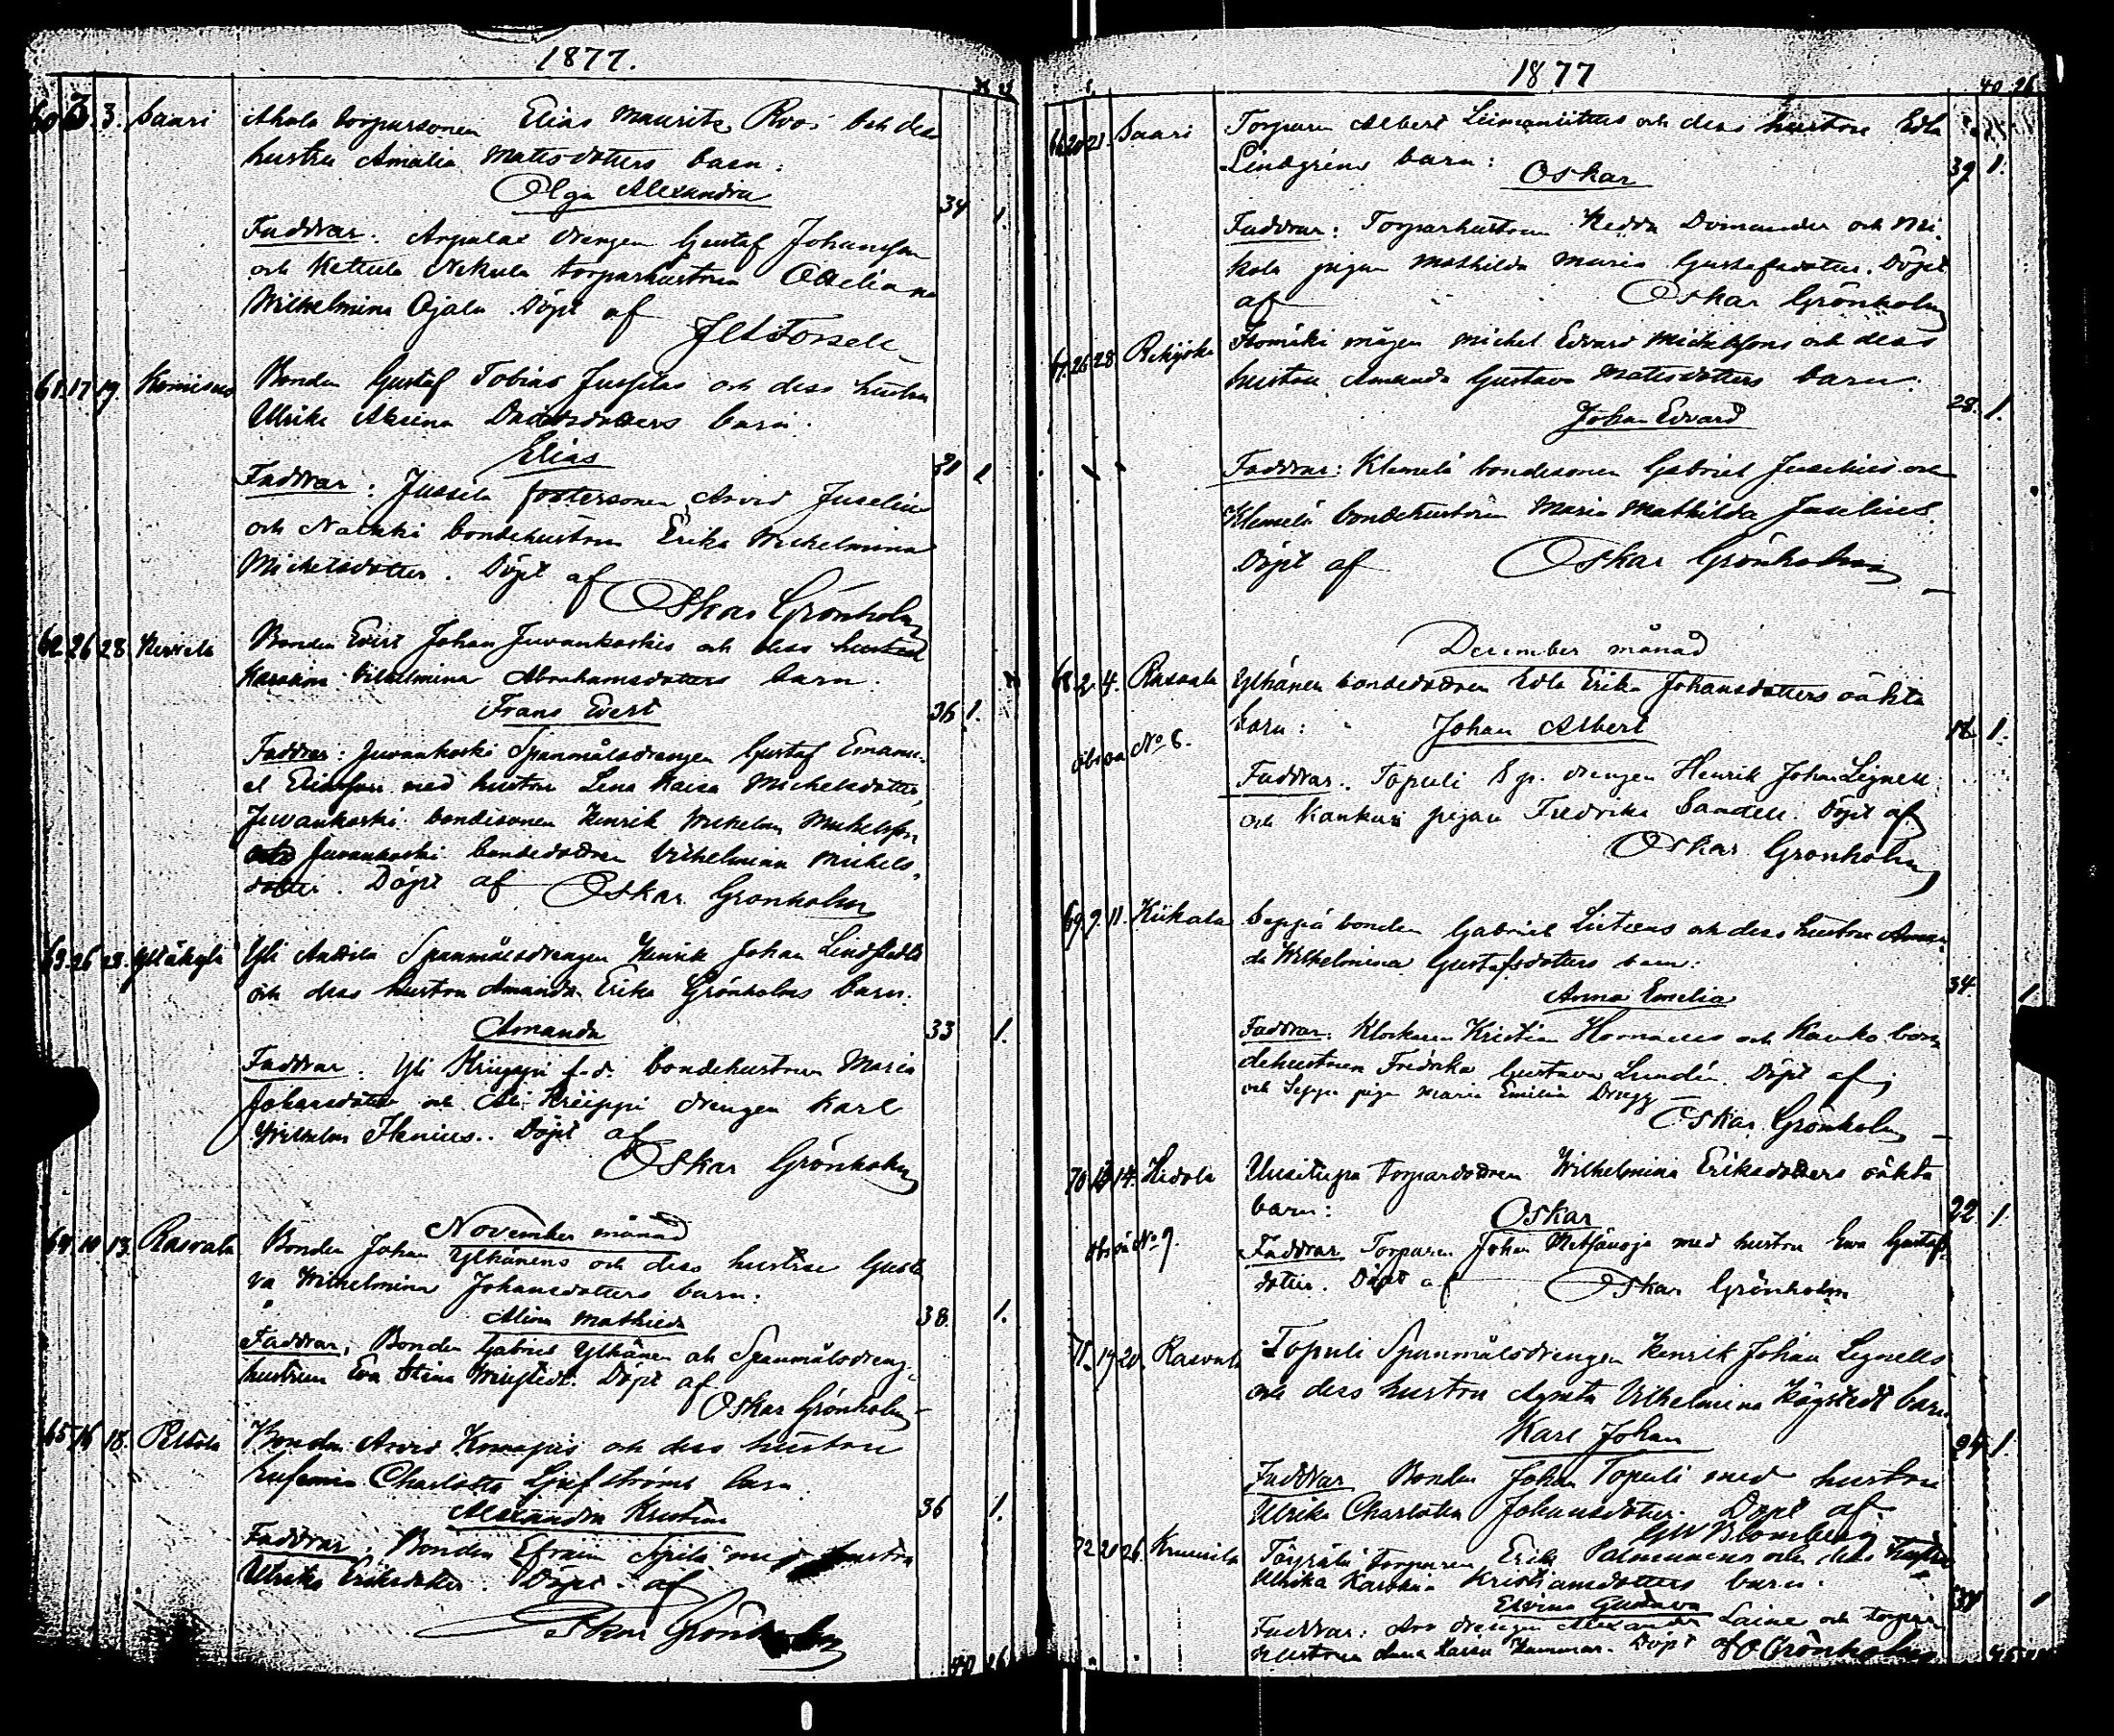 1877.
60. 3. 3. Saari Ahola torparsonen Elias Mauritz Roos' och dess
hustru Amalia Mattsdotters barn:
Olga Alexandra
34 1.
Faddrar: drengen Gustaf Johansson
och Kettula Nikula torparhustrun
Wilhelmina Ojala. Döpt af
61. 17. 19. Bonden Gustaf Tobias Jussilas och dess hustru
Ulrika barn.
Elias
31 1
Faddrar: Jussila fostersonen Arvid Juselius
och bondehustrun Erika Wilhelmina
Michelsdotter. Döpt af
Oskar Grönholm
62. 26 28. Bonden Evert Johan Juvankoskis och dess hustru
Karolina Vilhelmina Abrahamsdotters barn.
Frans Evert
36 1.
Faddrar: Juvankoski Spanmålsdrengen Gustaf Emanu-
el Eliasson med hustru Lena Kaisa Michelsdotter,
Juvankoski bondesonen Henrik Wilhelm Michelsson
och Juvankoski bondedottren Vilhelmina Michels-
dotter. Döpt af Oskar Grönholm
63. 26 28. Yltäkylä Yli Anttila Spanmålsdrengen Henrik Johan Lindstedts
och dess hustru Amanda Erika Grönholms barn.
Amanda
33 1.
Faddrar: Yli Kriippi f.d. bondehustrun Maria
Johansdotter och Ali Kriippi drengen Karl
Wilhelm Flenius. Döpt af
Oskar Grönholm
November månad
64. 10. 13. Rasvala Bonden Johan Ylhänens och dess hustru Gusta-
va Wilhelmina Johansdotters barn:
Alina Mathilda
38. 1.
Faddrar: Bonden Gabriel Ylhänen och Spanmålsdreng-
hustrun Eva Stina Döpt af
Oskar Grönholm
65. 16 18. Peltola Bonden Arvid och dess hustru
Eufemia Charlotta barn.
Alexandra Kristina
36 1.
Faddrar: Bonden Efraim med hustru
Ulrika Eriksdotter. Döpt af
Oskar Grönholm
40 26
1877
40 26
66. 20 21. Saari Torparen Albert Liimaniittus och dess hustru Edla
Lindgréns barn:
Oskar
39 1.
Faddrar: Torparhustrun Hedda och Ni-
kola pigan Mathilda Maria Gustafsdotter. Döpt
af Oskar Grönholm
67. 26 28 Rekijoki Isomäki mågen Michel Edvard Michelssons och dess
hustru Amanda Gustava Mattsdotters barn.
Johan Edvard
28. 1.
Faddrar: Klemelä bondesonen Gabriel Juselius och
Klemelä bondehustrun Maria Mathilda Juselius.
Döpt af Oskar Grönholm
December månad
68. 2. 4. Rasvala Ylhänen bondedottren Edla Erika Johansdotters oäkta
barn: Johan Albert
18 1.
Obs. oä No 8.
Faddrar: Topuli drengen Henrik Johan Lignell
och Kankari pigan Fredrika Sandell. Döpt af
Oskar Grönholm
69. 9. 11. Kiikala Seppä bonden Gabriel och dess hustru Aman-
da Wilhelmina Gustafsdotters barn:
Anna Emelia
34. 1.
Faddrar: Klockaren Kristian Hornaeus och Kauko bon-
dehustrun Fredrika Gustava Lundén. Döpt af
och Seppä pigan Maria Emilia
Oskar Grönholm
70. 14. Hidola Uusitupa torpardottren Wilhelmina Eriksdotters oäkta
barn: Oskar
22 1.
Obs. oä No 9.
Faddrar Torparen Johan Metsänoja med hustru Eva Gustafs-
dotter. Döpt af Oskar Grönholm
71. 19 20. Rasvala Topuli Spanmålsdrengen Henrik Johan Lignells
och dess hustru Agata Vilhelmina Hägstedt barn.
Karl Johan
24 1
Faddrar Bonden Johan Topuli med hustru
Ulrika Charlotta Johansdotter. Döpt af
GW Blomberg
72 20 26. Kruusila torparen Erik och dess hustru
Ulrika Karolina Kristiansdotters barn.
Elvina Gustava
38 1
Faddrar: drengen Alexander Laine och torpar-
hustrun Anna Kaisa Hammar. Döpt af O Grönholm